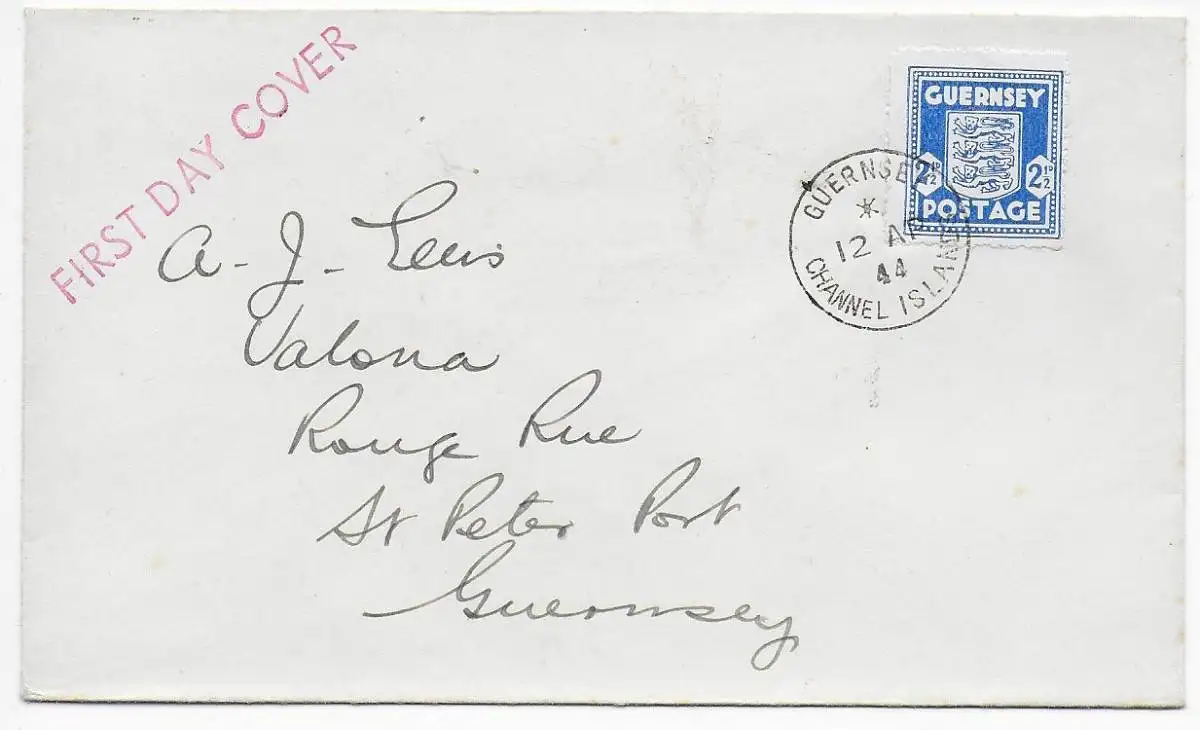 FIRST DAY COVER
GUERNSEY
2½ᴰ 2½ᴰ
POSTAGE
GUERNSEY
12 AP
44
CHANNEL ISLANDS
A. J. Lewis
Valona
Rouge Rue
St Peter Port
Guernsey